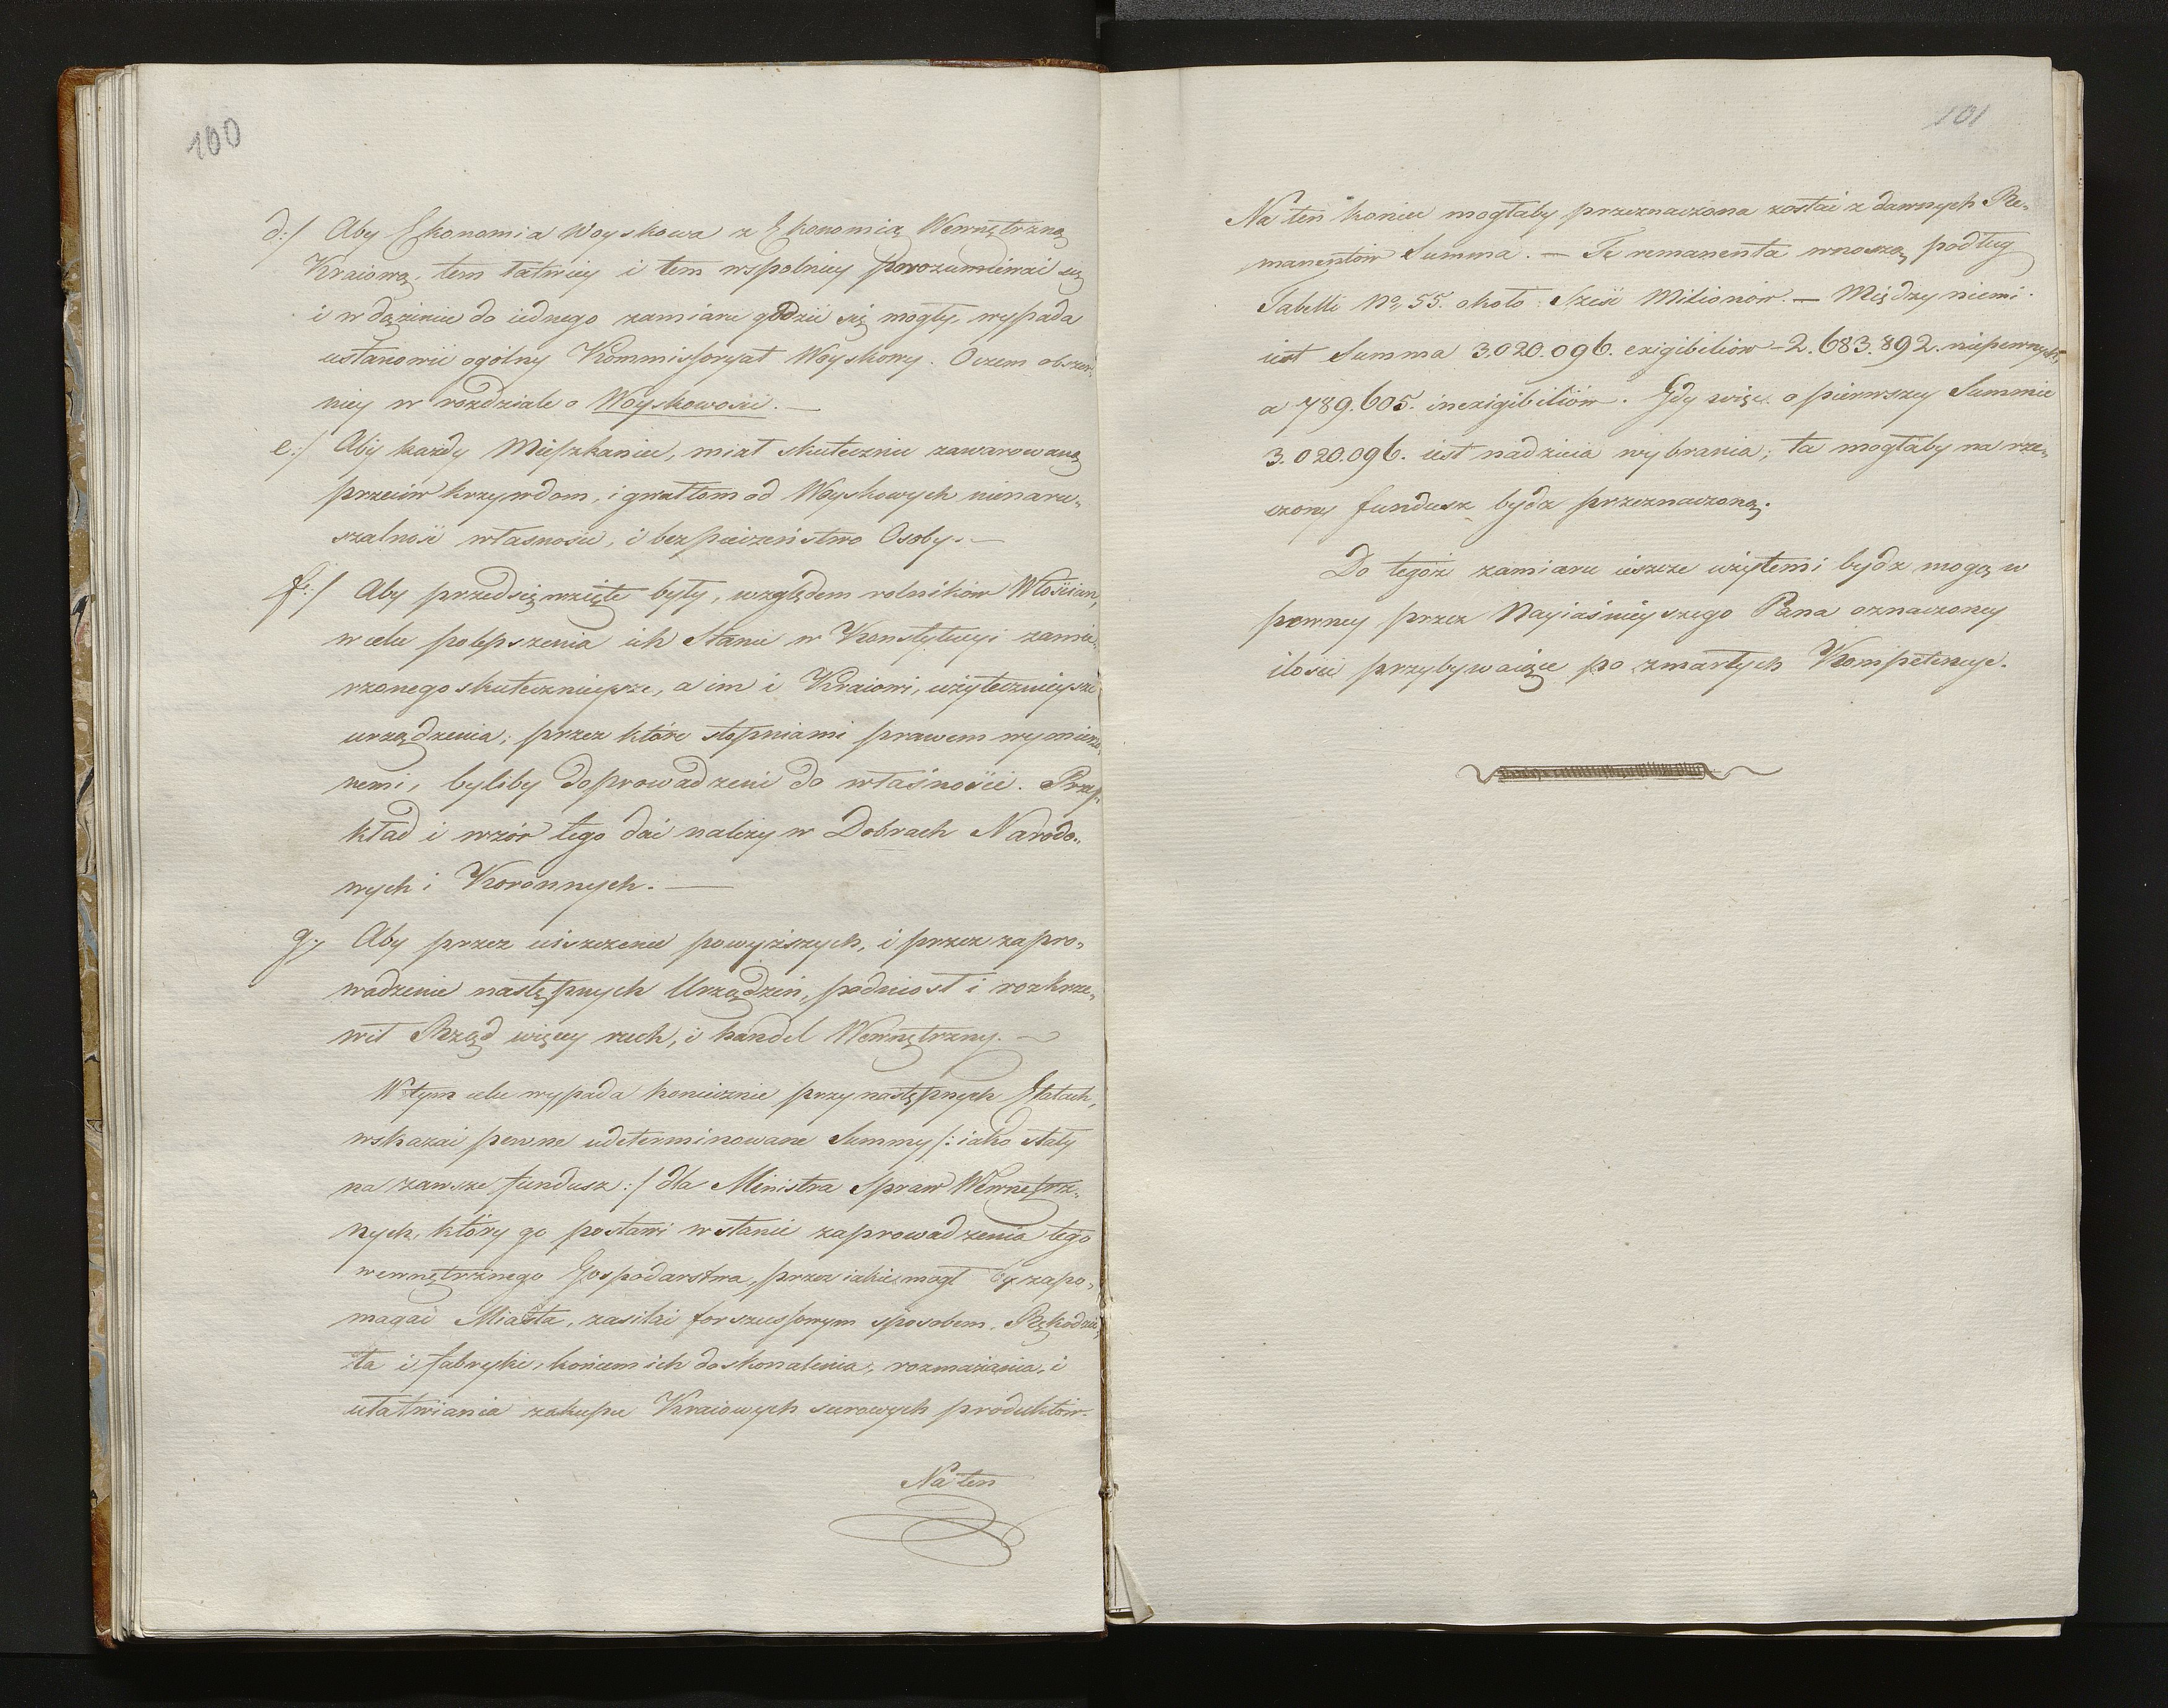 100
d:/ Aby Ekonomia Woyskowa z Ekonomią Wewnętrzną
Kraiową, tem łatwiey i tem wspolniey porozumiewać się
i w dążeniu do iednego zamiaru godzić się mogły, wypada
ustanowić ogólny Kommissoryat Woyskowy. O czem obszer-
niey w rozdziale o Woyskowości. —
e:/ Aby każdy Mieszkaniec, miał skutecznie zawarowaną
przeciw krzywdom, i gwałtom od Woyskowych nienaru-
szalność własności, i bezpieczeństwo Osoby. —
f:/ Aby przedsięwzięte były, względem rolników Włościan,
w celu polepszenia ich Stanu w Konstytucyi zamie-
rzonego skutecznieysze, a im i Kraiowi, użytecznieysze
urządzenia; przez które stopniami prawem wymierzo-
nemi, byliby doprowadzeni do własności. Przy-
kład i wzór tego dać należy w Dobrach Narodo-
wych i Koronnych. —
g:/ Aby przez uiszczenie powyższych, i przez zapro-
wadzenie następnych Urządzeń, podniosł i rozkrze-
wił Rząd więcey ruch, i handel Wewnętrzny. —
W tym celu wypada koniecznie przy następnych Etatach,
wskazać pewne udeterminowane Summy /: iako stały
na zawsze fundusz :/ dla Ministra Spraw Wewnętrz-
nych, który go postawi w stanie zaprowadzenia tego
wewnętrznego Gospodarstwa, przez iakie mógł by zapo-
magać Miasta, zasilać forszussowym sposobem, Rękodzie-
ła i fabryki, końcem ich doskonalenia, rozmażania, i
ułatwiania zakupu Kraiowych surowych produktów.
Na ten
101
Na ten koniec mogłaby przeznaczona zostać z dawnych Re-
manentów Summa. — Te remanenta wnoszą podług
Tabelli No 55. około Sześć Milionów. — Między niemi
iest Summa 3.020.096. exigibiliów — 2.683.892. niepewnych,
a 789.605. inexigibiliów. Gdy więc o pierwszey Summie
3.020.096. iest nadzieia wybrania; ta mogłaby na rze-
czony fundusz bydz przeznaczoną.
Do tegoż zamiaru ieszcze użytemi bydz mogą w
pewney przez Nayiaśnieyszego Pana oznaczoney
ilości przybywaiące po zmarłych Kompetencye.